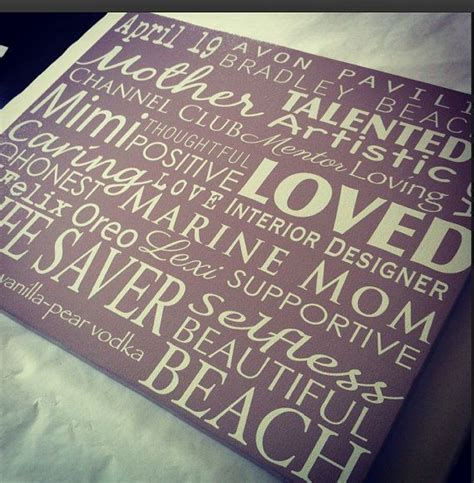 April 19 AVON PAVILI
BRADLEY BEAC
Mother TALENTED
CHANNEL CLUB Mentor Artistic
Mimi THOUGHTFUL Loving
POSITIVE LOVED
Caring LOVE INTERIOR DESIGNER
HONEST MARINE MOM
Felix Oreo Lexi SUPPORTIVE
FE SAVER Selfless
vanilla-pear vodka BEAUTIFUL
BEACH